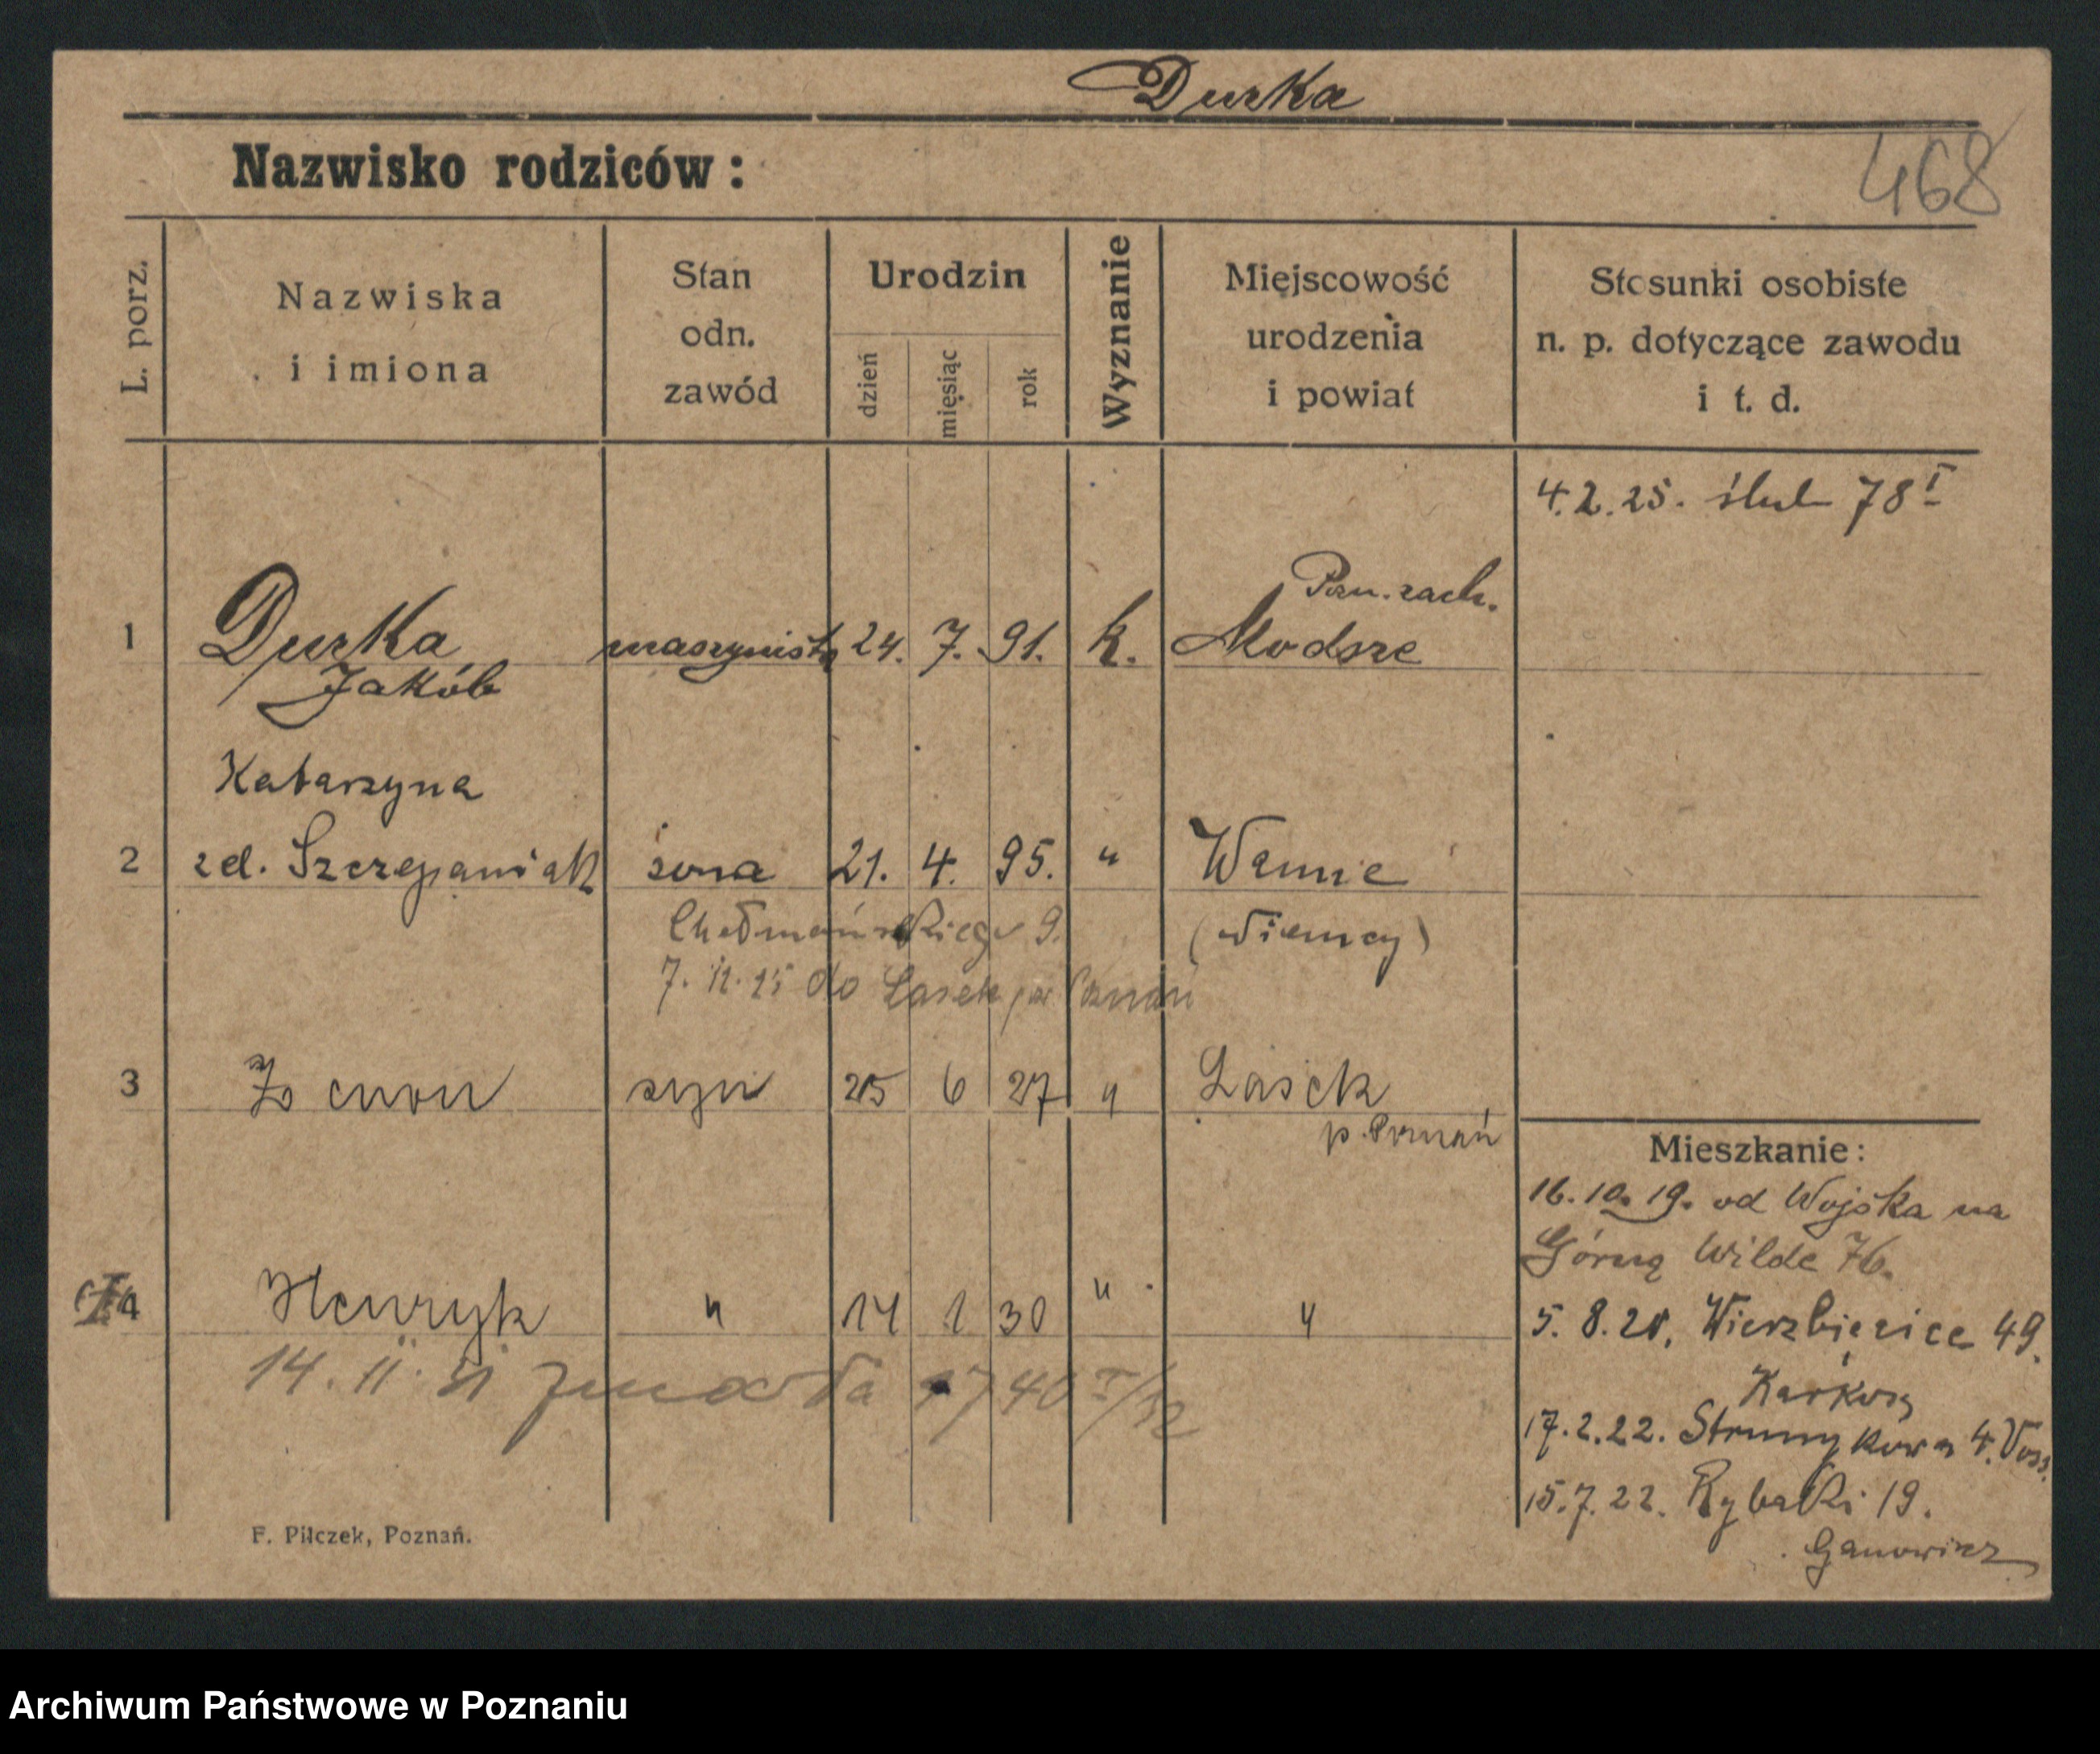 Durka
Nazwisko rodziców:
468
L. porz.
Nazwiska
i imiona
Stan
odn.
zawód
Urodzin
dzień
miesiąc
rok
Wyznanie
Miejscowość
urodzenia
i powiat
Stosunki osobiste
n. p. dotyczące zawodu
i t. d.
4.2.25. ślub 78 I
Pozn. zach.
1 Durka maszynista 24. 7. 91. k. Modrze
Jakób
Katarzyna
2 zd. Szczepaniak żona 21. 4. 95. " Wanne
Chełmońskiego 9. (Niemcy)
7. 11. 25 do Lasek Poznań
3 Zenon syn 25 6 27 " Lasek
p. Poznań
Mieszkanie:
16.10.19. od Wojska na
Górną Wilde 76.
4 Henryk " 14 1 30 " "
5. 8. 20. Wierzbięcice 49.
14. II. 31 zmarła 40 I/32
17.2.22. Strumykowa 4. Voss.
15.7.22. Rybaki 19.
Ganowicz
F. Pilczek, Poznań.
Archiwum Państwowe w Poznaniu